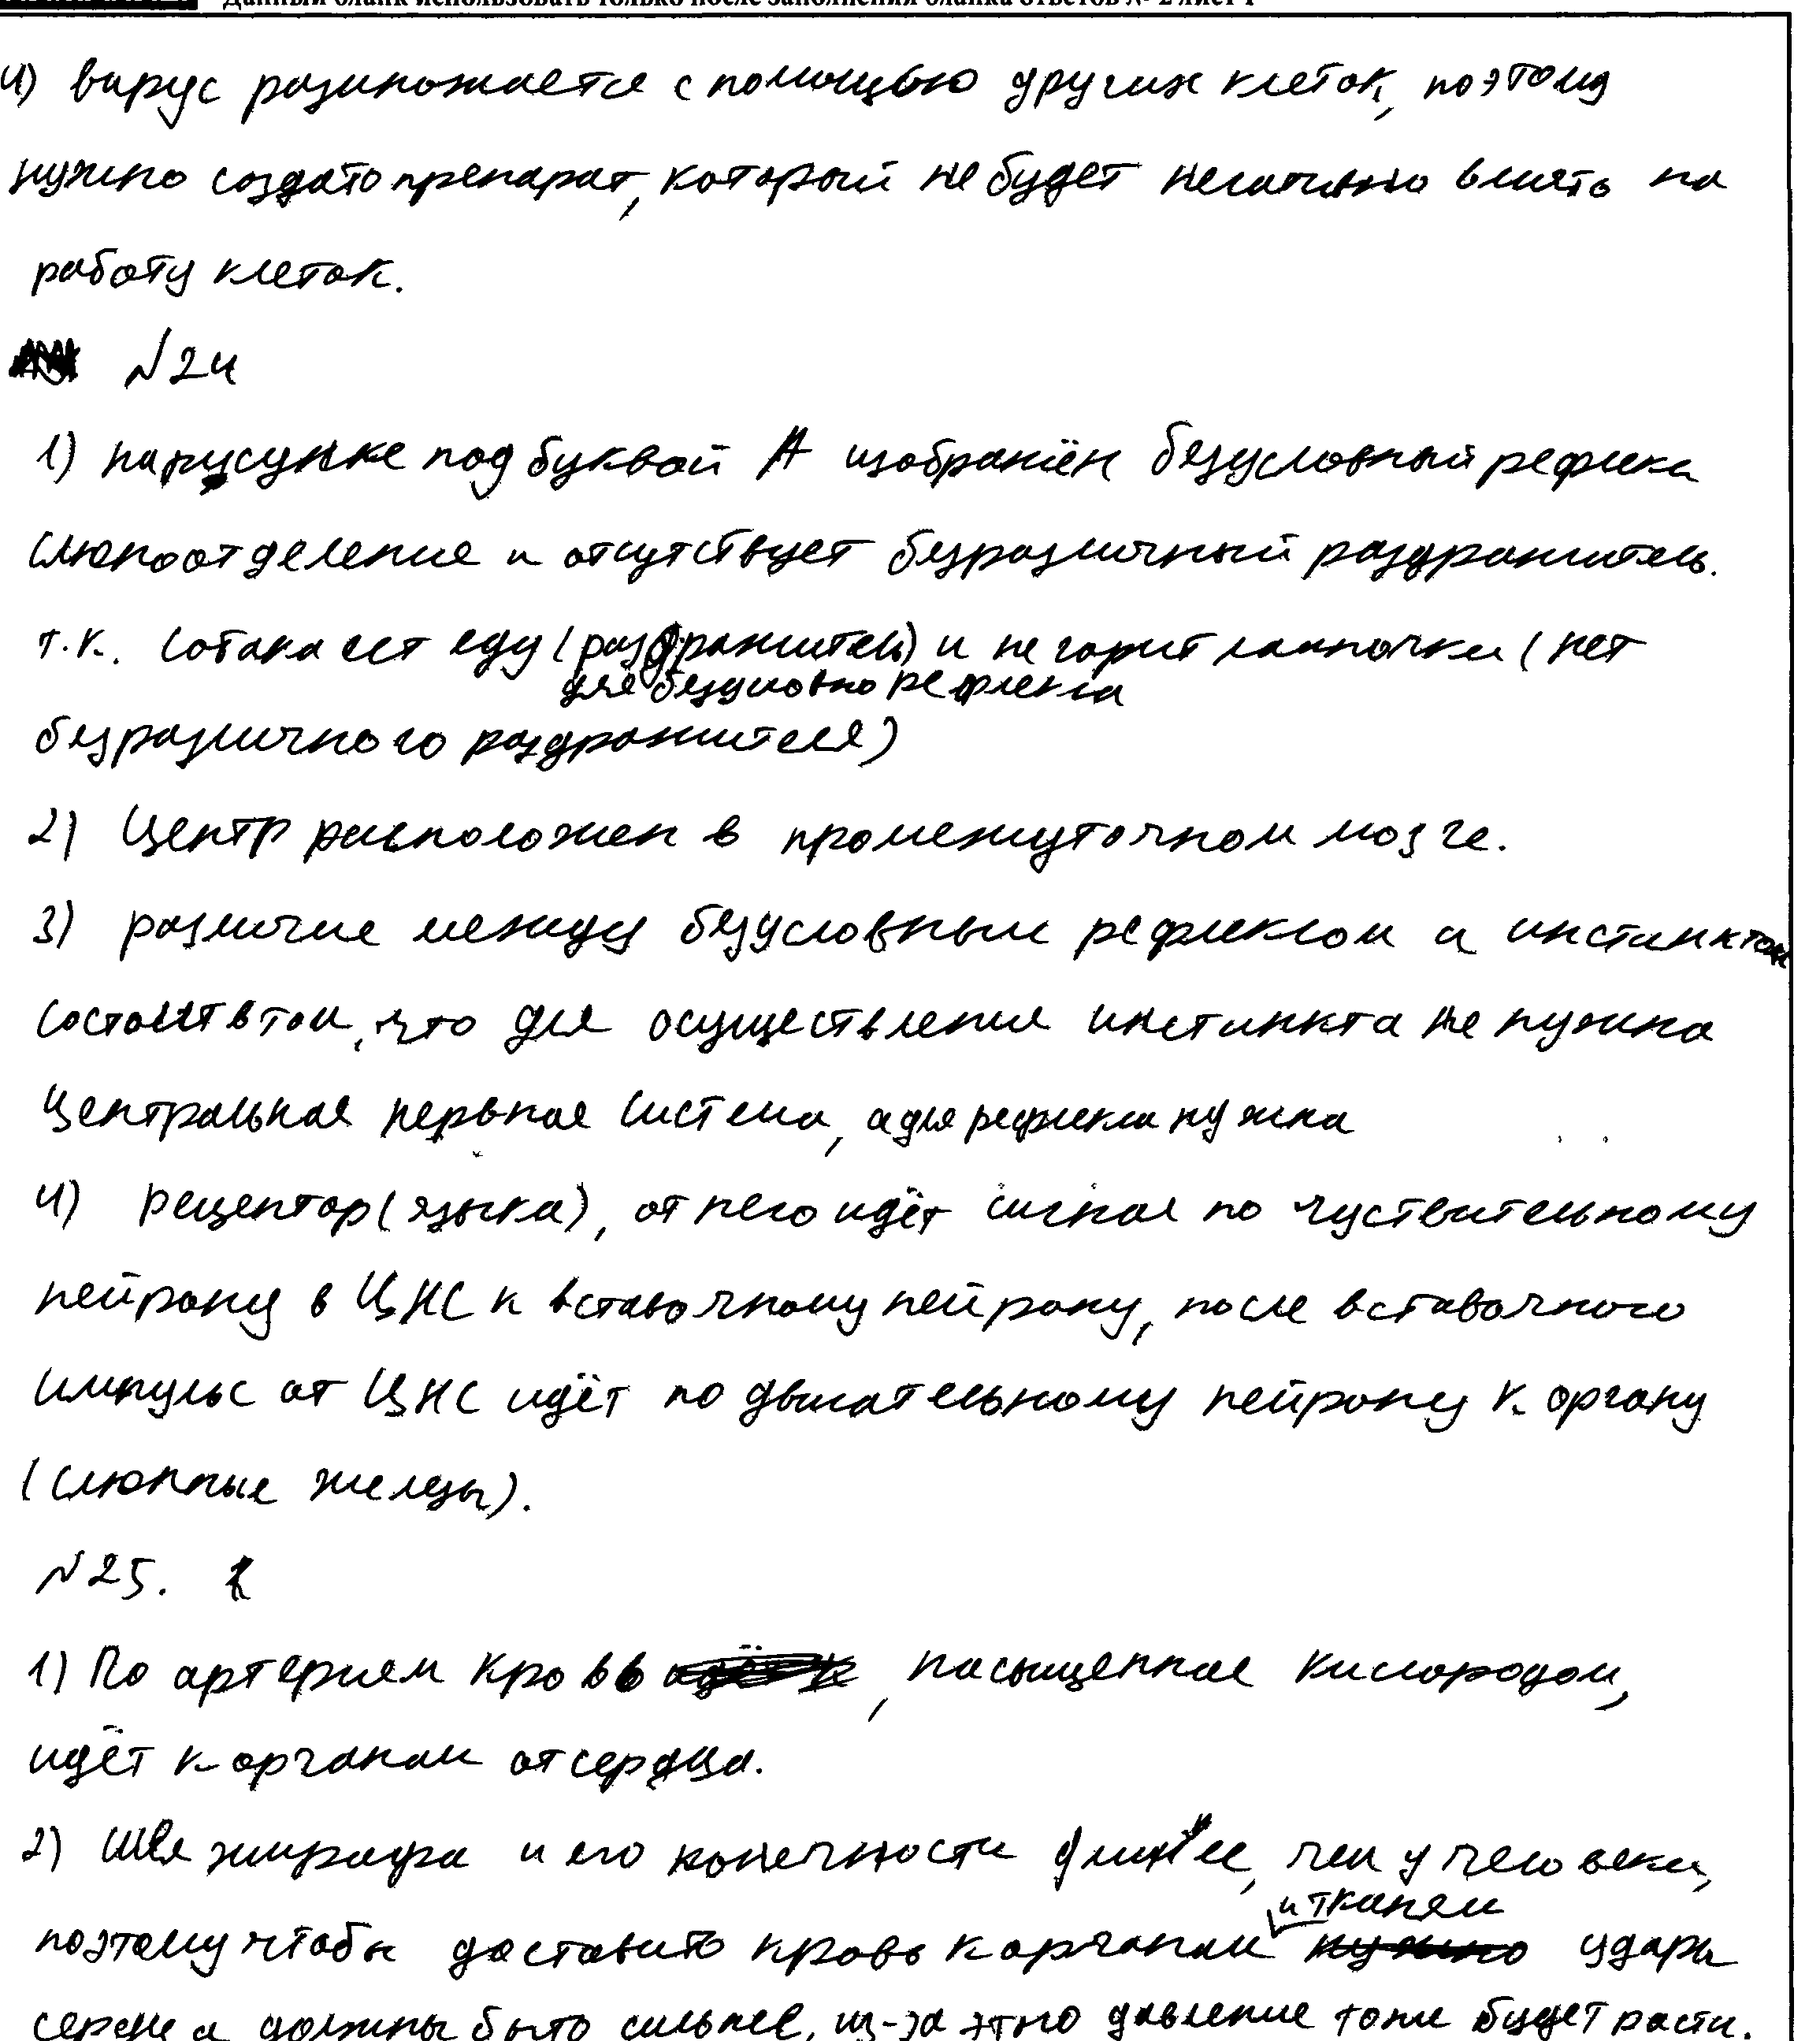 Данный бланк использовать только после заполнения бланка ответов № 2 лист 1
4) вирус размножается с помощью других клеток, поэтому
нужно создать препарат, который не будет негативно влиять на
работу клеток.
№24
1) на рисунке под буквой А изображён безусловный рефлекс
слюноотделение и отсутствует безразличный раздражитель.
т.к. собака ест еду (раздражитель) и не горит лампочки (нет
для безусловно рефлекса
безразличного раздражителя)
2) Центр расположен в промежуточном мозге.
3) различие между безусловным рефлексом и инстинктом
состоит в том, что для осуществления инстинкта не нужна
центральная нервная система, а для рефлекса нужна
4) рецептор (языка), от него идёт сигнал по чуствительному
нейрону в ЦНС к вставочному нейрону, после вставочного
импульс от ЦНС идёт по двигательному нейрону к органу
(слюнные железы).
№25.
1) По артериям кровь, насыщенная кислородом,
идёт к органам от сердца.
2) Шея жирафа и его конечности длиннее, чем у человека,
и тканям
поэтому чтобы доставить кровь к органам нужно удары
сердца должны быть сильнее, из-за этого давление тоже будет расти.